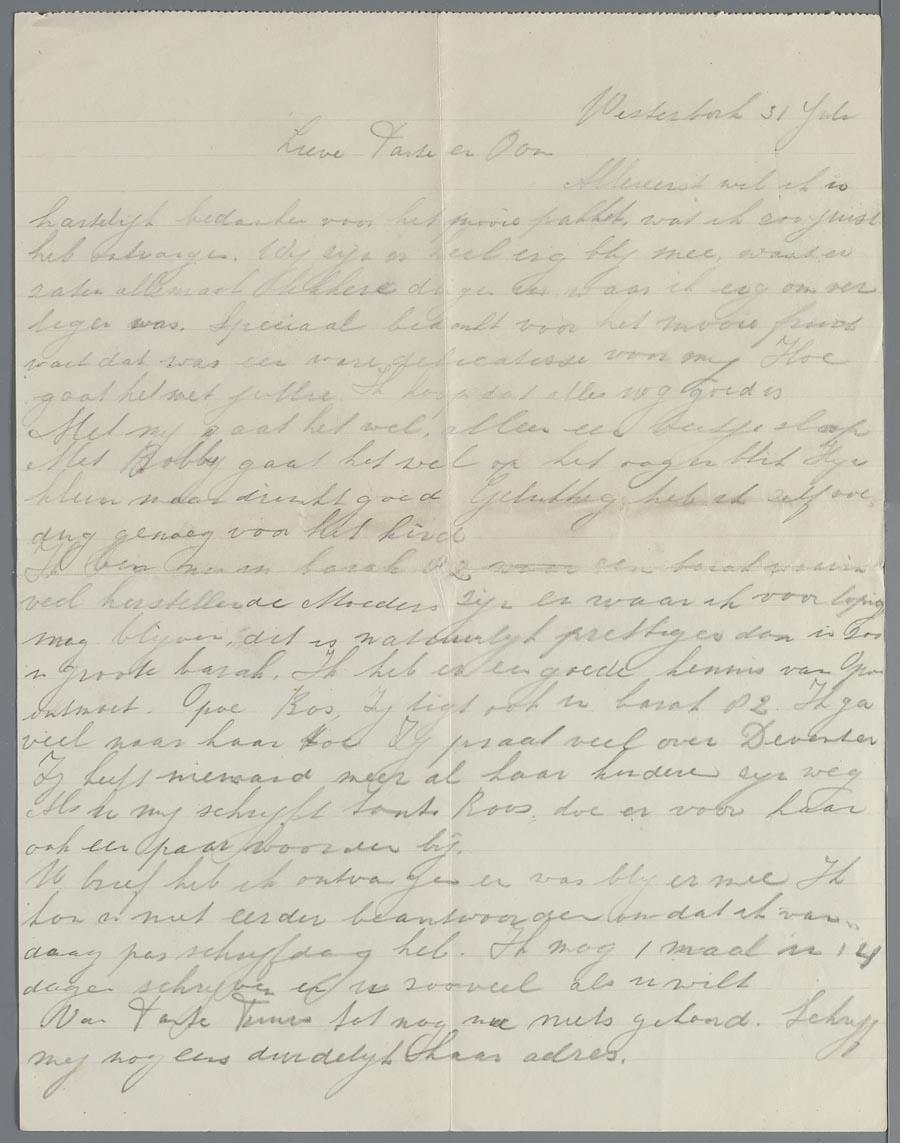 Westerbork 31 Juli
Lieve Tante en Oom
Allereerst wil ik u
hartelijk bedanken voor het mooie pakket, wat ik zoo juist
heb ontvangen. Wij zijn er heel erg blij mee, want er
zaten allemaal lekkere dingen in waar ik erg om ver
legen was. Speciaal bedankt voor het mooie fruit
want dat was een ware delicatesse voor mij Hoe
gaat het met jullie. Ik hoop dat alles nog goed is
Met mij gaat het wel, alleen een beetje slap
Met Bobby gaat het wel op het oogenblik Hij is
klein maar drinkt goed Gelukkig heb ik zelf voe
ding genoeg voor het kind
Ik ben nu in barak 82 een barak waarin
veel herstellende Moeders zijn en waar ik voorlopig
mag blijven, dit is natuurlijk prettiger dan in zoo
n groote barak. Ik heb er een goede kennis van Opoe
ontmoet. Opoe Ros, Zij ligt ook in barak 82. Ik ga
veel naar haar toe Zij praat veel over Deventer
Zij heeft niemand meer al haar kinderen zijn weg
Als u mij schrijft tante Roos, doe er voor haar
ook een paar woorden bij.
U brief heb ik ontvangen en was blij er mee Ik
kon u niet eerder beantwoorden omdat ik van„
daag pas schrijfdag heb. Ik mag 1 maal in 14
dagen schrijven en u zooveel als u wilt
Van Tante tot nog toe niets gehoord. Schrijf
mij nog eens duidelijk haar adres.